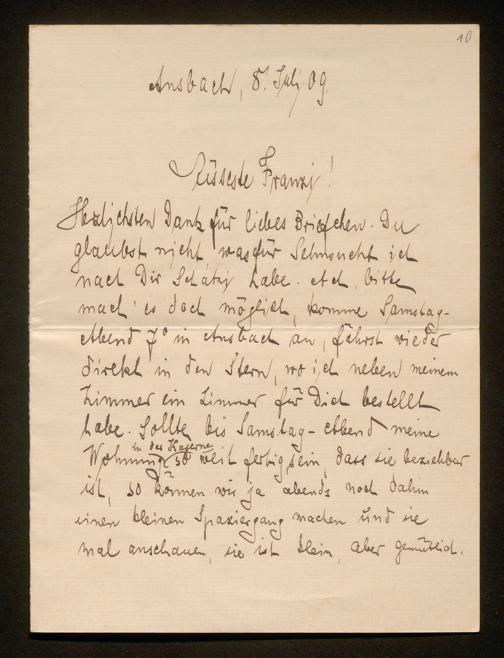 10
Ansbach, 8. Juli 09.
Süsseste Franzi!
Herzlichsten Dank für liebes Briefchen. Du
glaubst nicht was für Sehnsucht ich
nach Dir Schatzi habe. Ach, bitte
mach' es doch möglich, komme Samstag-
Abend 7° in Ansbach an, fährst wieder
direkt in den Stern, wo ich neben meinem
Zimmer ein Zimmer für Dich bestellt
habe. Sollte bis Samstag-Abend meine
in der Kaserne
Wohnung so weit fertig sein, dass sie beziehbar
ist, so können wir ja abends noch dahin
einen kleinen Spaziergang machen und sie
mal anschauen, sie ist klein, aber gemütlich.